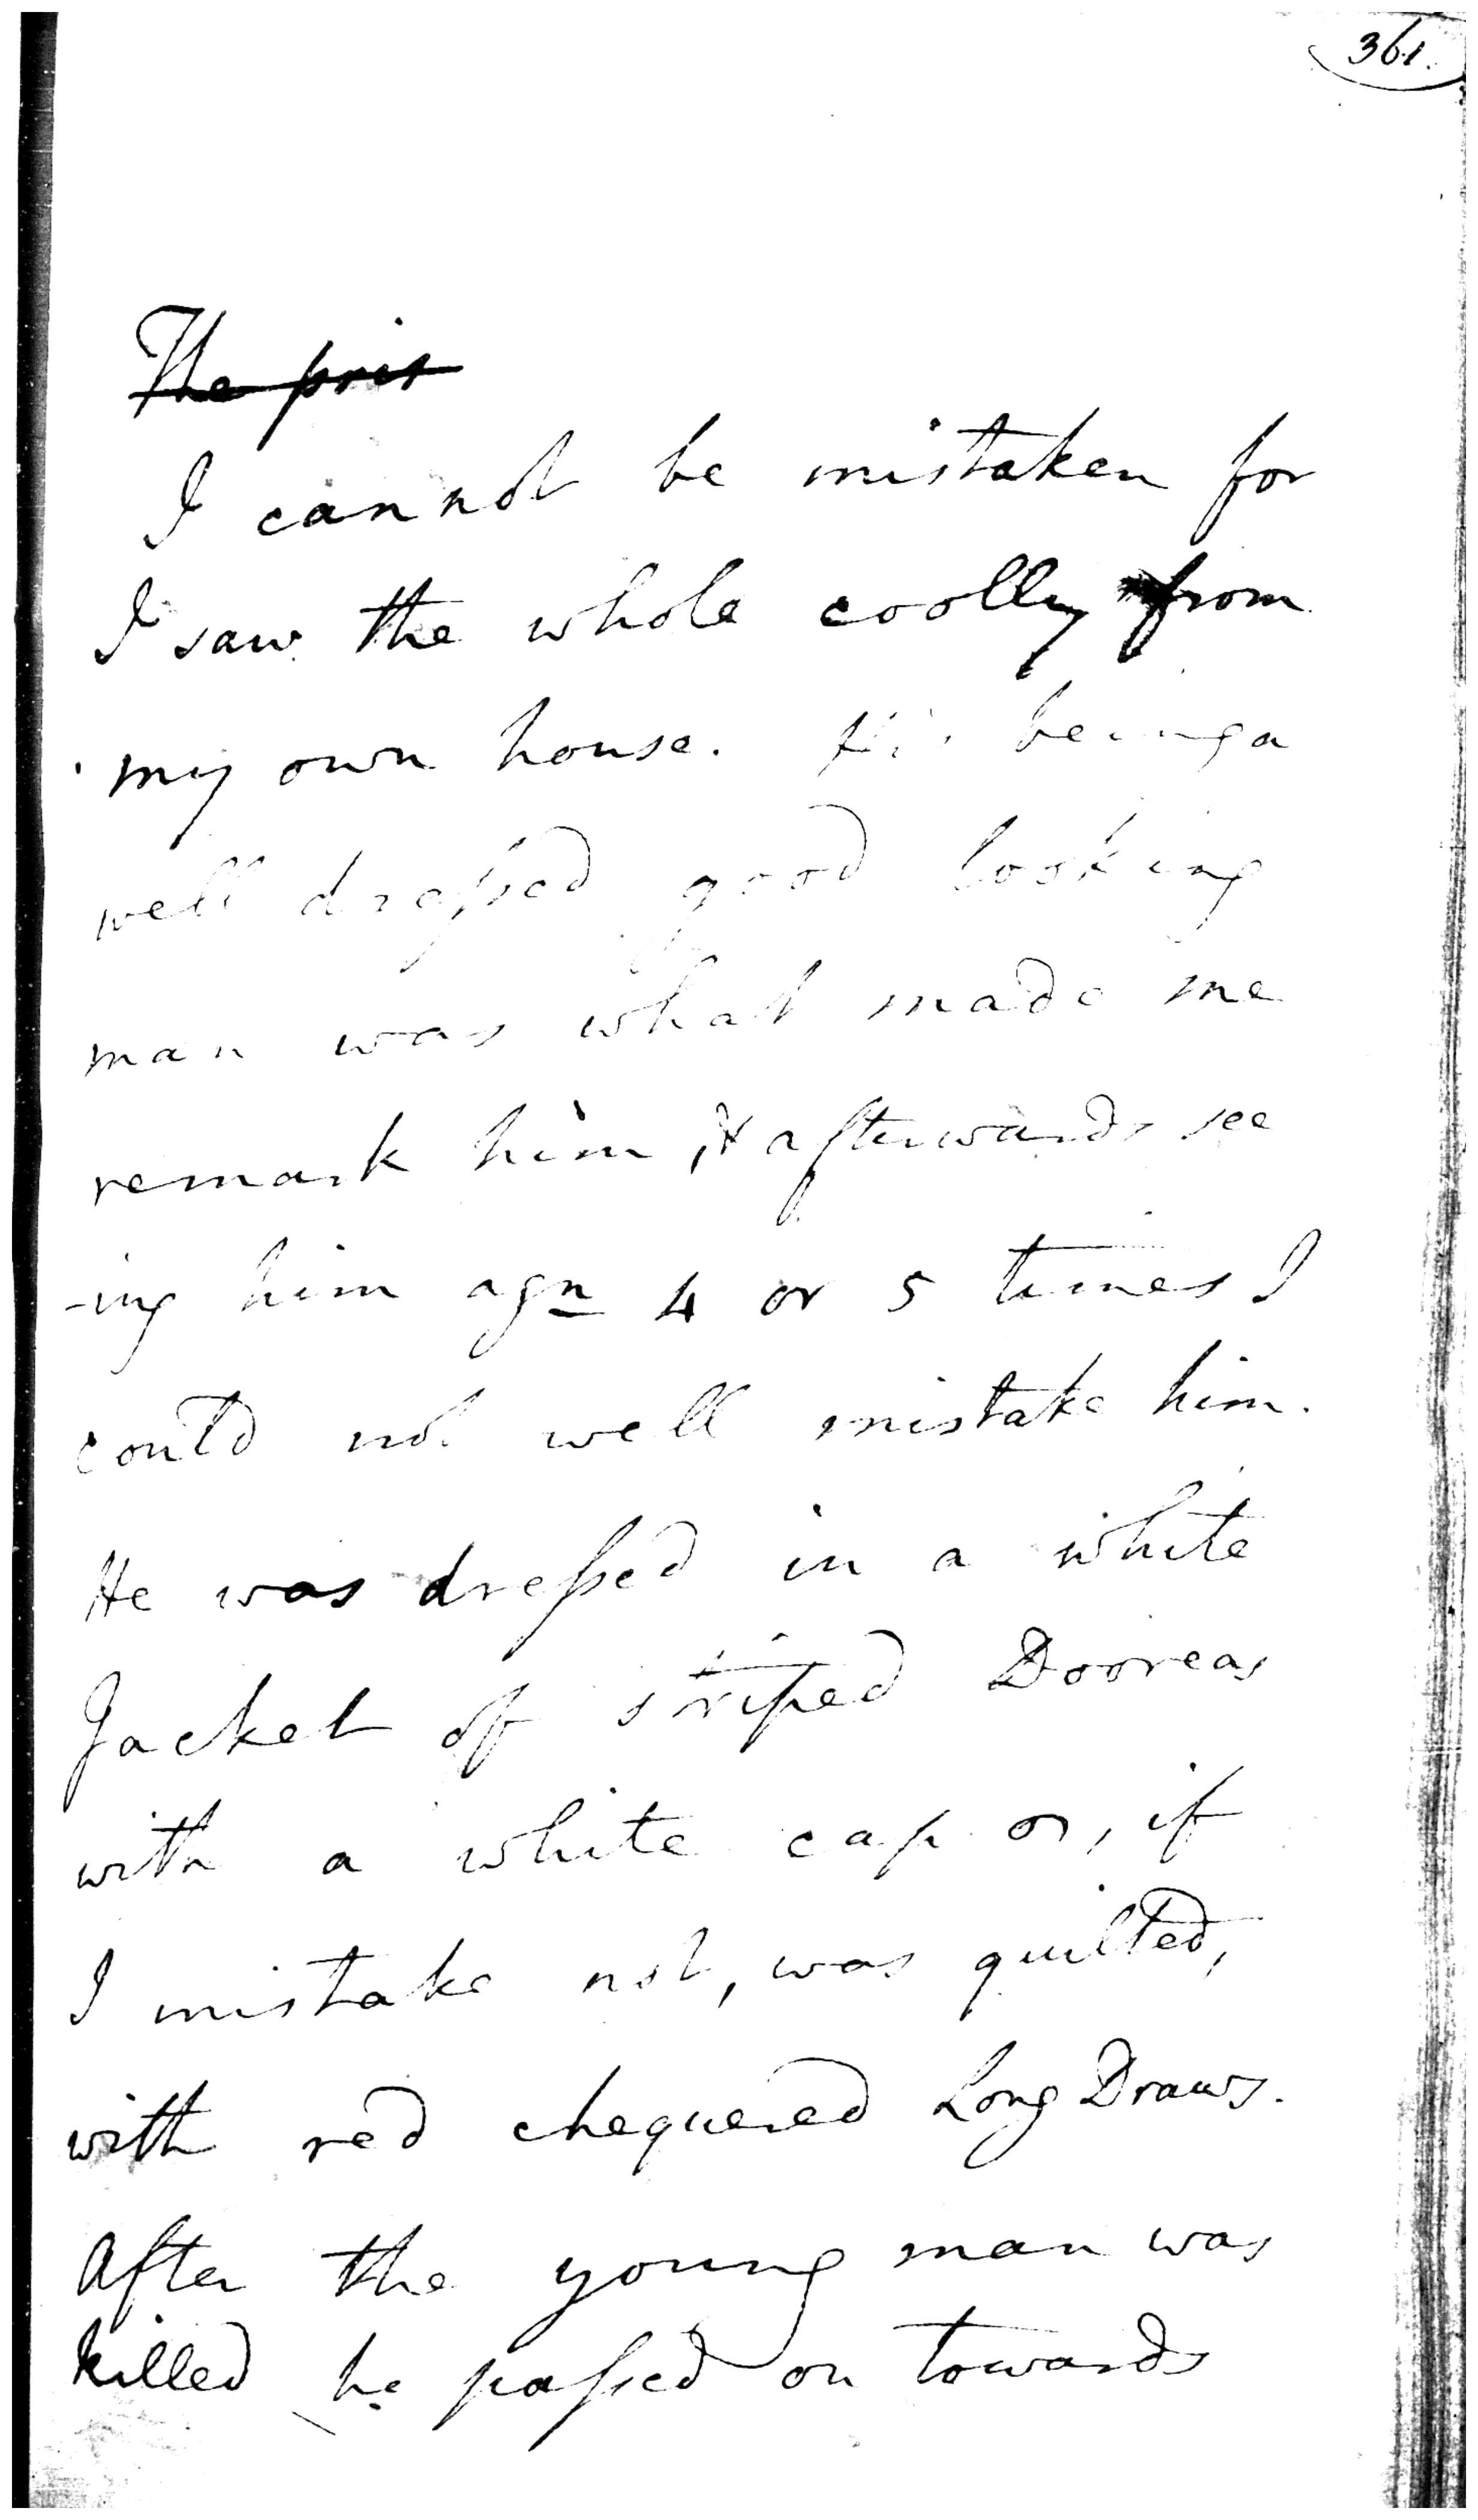 361.
The pris
I cannot be mistaken for
I saw the whole coolly from
my own house. His being a
well dressed good looking
man was what made me
remark him, & afterwards see
-ing him agn 4 or 5 times I
could not well mistake him.
He was dressed in a white
Jacket of striped Dooreas
with a white cap or, if
I mistake not, was quilted,
with red chequered Long Draws.
After the young man was
killed he passed on towards